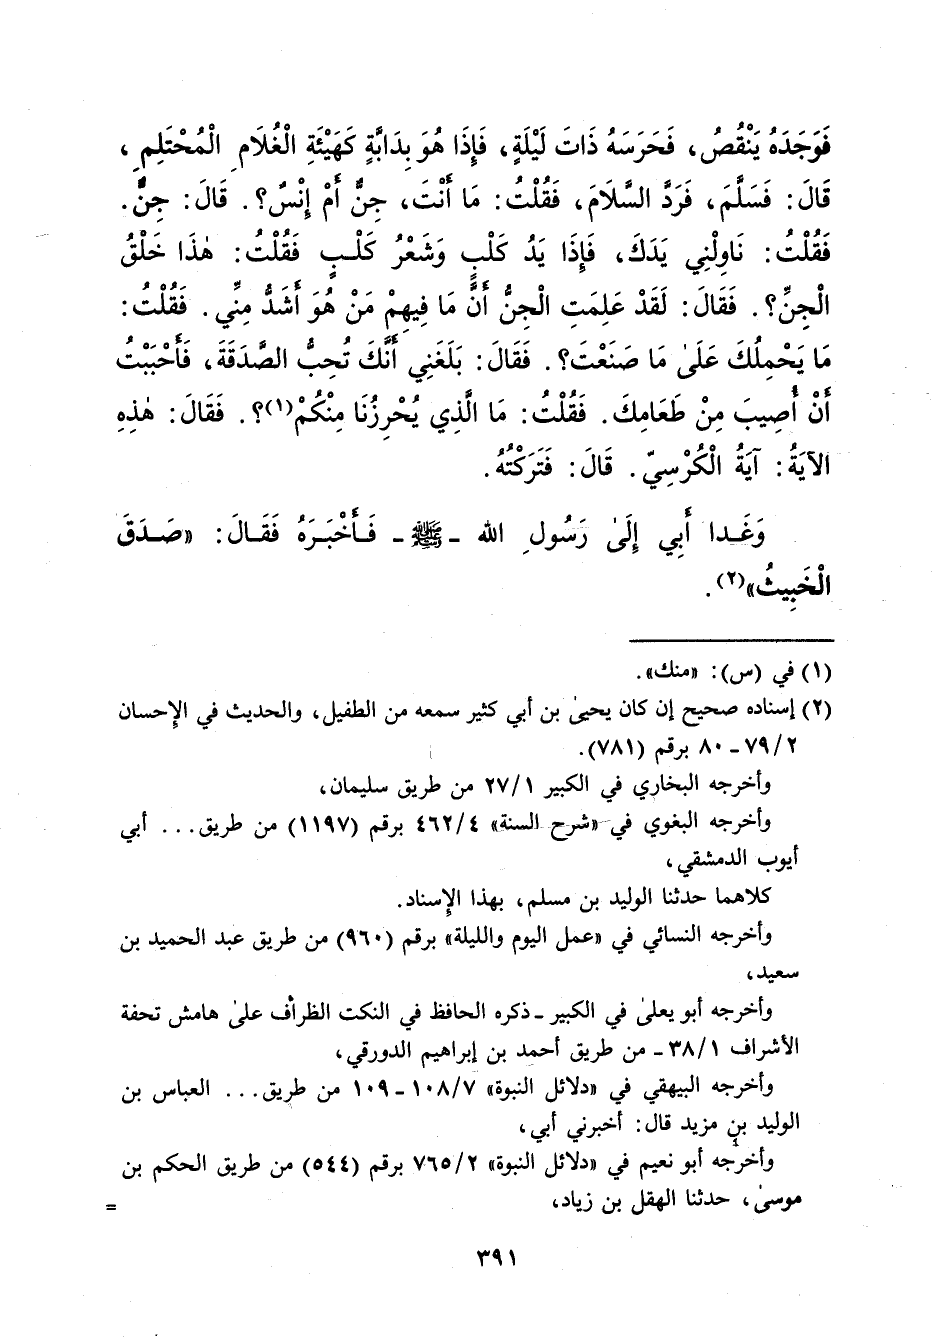 فَوَجَدَهُ يَنْقُصُ، فَحَرَسَهُ ذَاتَ لَيْلَةٍ، فَإِذَا هُوَ بِدَابَّةٍ كَهَيْئَةِ الْغُلَامِ الْمُحْتَلِمِ،
قَالَ: فَسَلَّمَ، فَرَدَّ السَّلَامَ، فَقُلْتُ: مَا أَنْتَ، جِنٌّ أَمْ إِنْسٌ؟. قَالَ: جِنٌّ.
فَقُلْتُ: نَاوِلْنِي يَدَكَ، فَإِذَا يَدُ كَلْبٍ وَشَعْرُ كَلْبٍ فَقُلْتُ: هٰذَا خَلْقُ
الْجِنِّ؟. فَقَالَ: لَقَدْ عَلِمَتِ الْجِنُّ أَنَّ مَا فِيهِمْ مَنْ هُوَ أَشَدُّ مِنِّي. فَقُلْتُ:
مَا يَحْمِلُكَ عَلَىٰ مَا صَنَعْتَ؟. فَقَالَ: بَلَغَنِي أَنَّكَ تُحِبُّ الصَّدَقَةَ، فَأَحْبَبْتُ
أَنْ أُصِيبَ مِنْ طَعَامِكَ. فَقُلْتُ: مَا الَّذِي يُحْرِزُنَا مِنْكُمْ(١)؟. فَقَالَ: هٰذِهِ
الآيَةُ: آيَةُ الْكُرْسِيّ. قَالَ: فَتَرَكْتُهُ.
وَغَدا أَبِي إِلَىٰ رَسُولِ الله ـ ﷺ ـ فَأَخْبَرَهُ فَقَالَ: «صَدَقَ
الْخَبِيثُ»(٢).
(١) في (س): «منك».
(٢) إسناده صحيح إن كان يحيىٰ بن أبي كثير سمعه من الطفيل، والحديث في الإحسان
٢/ ٧٩ ـ ٨٠ برقم (٧٨١).
وأخرجه البخاري في الكبير ١/ ٢٧ من طريق سليمان،
وأخرجه البغوي في «شرح السنة» ٤/ ٤٦٢ برقم (١١٩٧) من طريق... أبي
أيوب الدمشقي،
كلاهما حدثنا الوليد بن مسلم، بهذا الإسناد.
وأخرجه النسائي في «عمل اليوم والليلة» برقم (٩٦٠) من طريق عبد الحميد بن
سعيد،
وأخرجه أبو يعلىٰ في الكبير ـ ذكره الحافظ في النكت الظراف علىٰ هامش تحفة
الأشراف ١/ ٣٨ ـ من طريق أحمد بن إبراهيم الدورقي،
وأخرجه البيهقي في «دلائل النبوة» ٧/ ١٠٨ ـ ١٠٩ من طريق... العباس بن
الوليد بن مزيد قال: أخبرني أبي،
وأخرجه أبو نعيم في «دلائل النبوة» ٢/ ٧٦٥ برقم (٥٤٤) من طريق الحكم بن
موسىٰ، حدثنا الهقل بن زياد، =
٣٩١